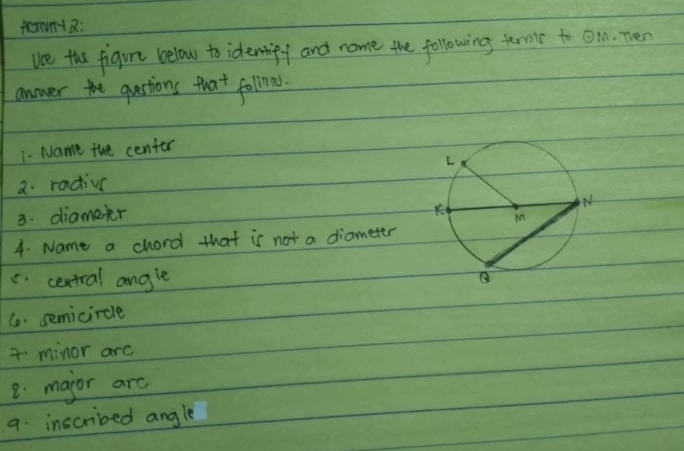 Activity 2:
Use the figure below to identify and name the following terms to ⊙M. Then
answer the questions that follow.
1. Name the center
2. radius
3. diameter
4. Name a chord that is not a diameter
5. central angle
6. semicircle
7. minor arc
8. major arc
9. inscribed angle
L
K
M
N
Q